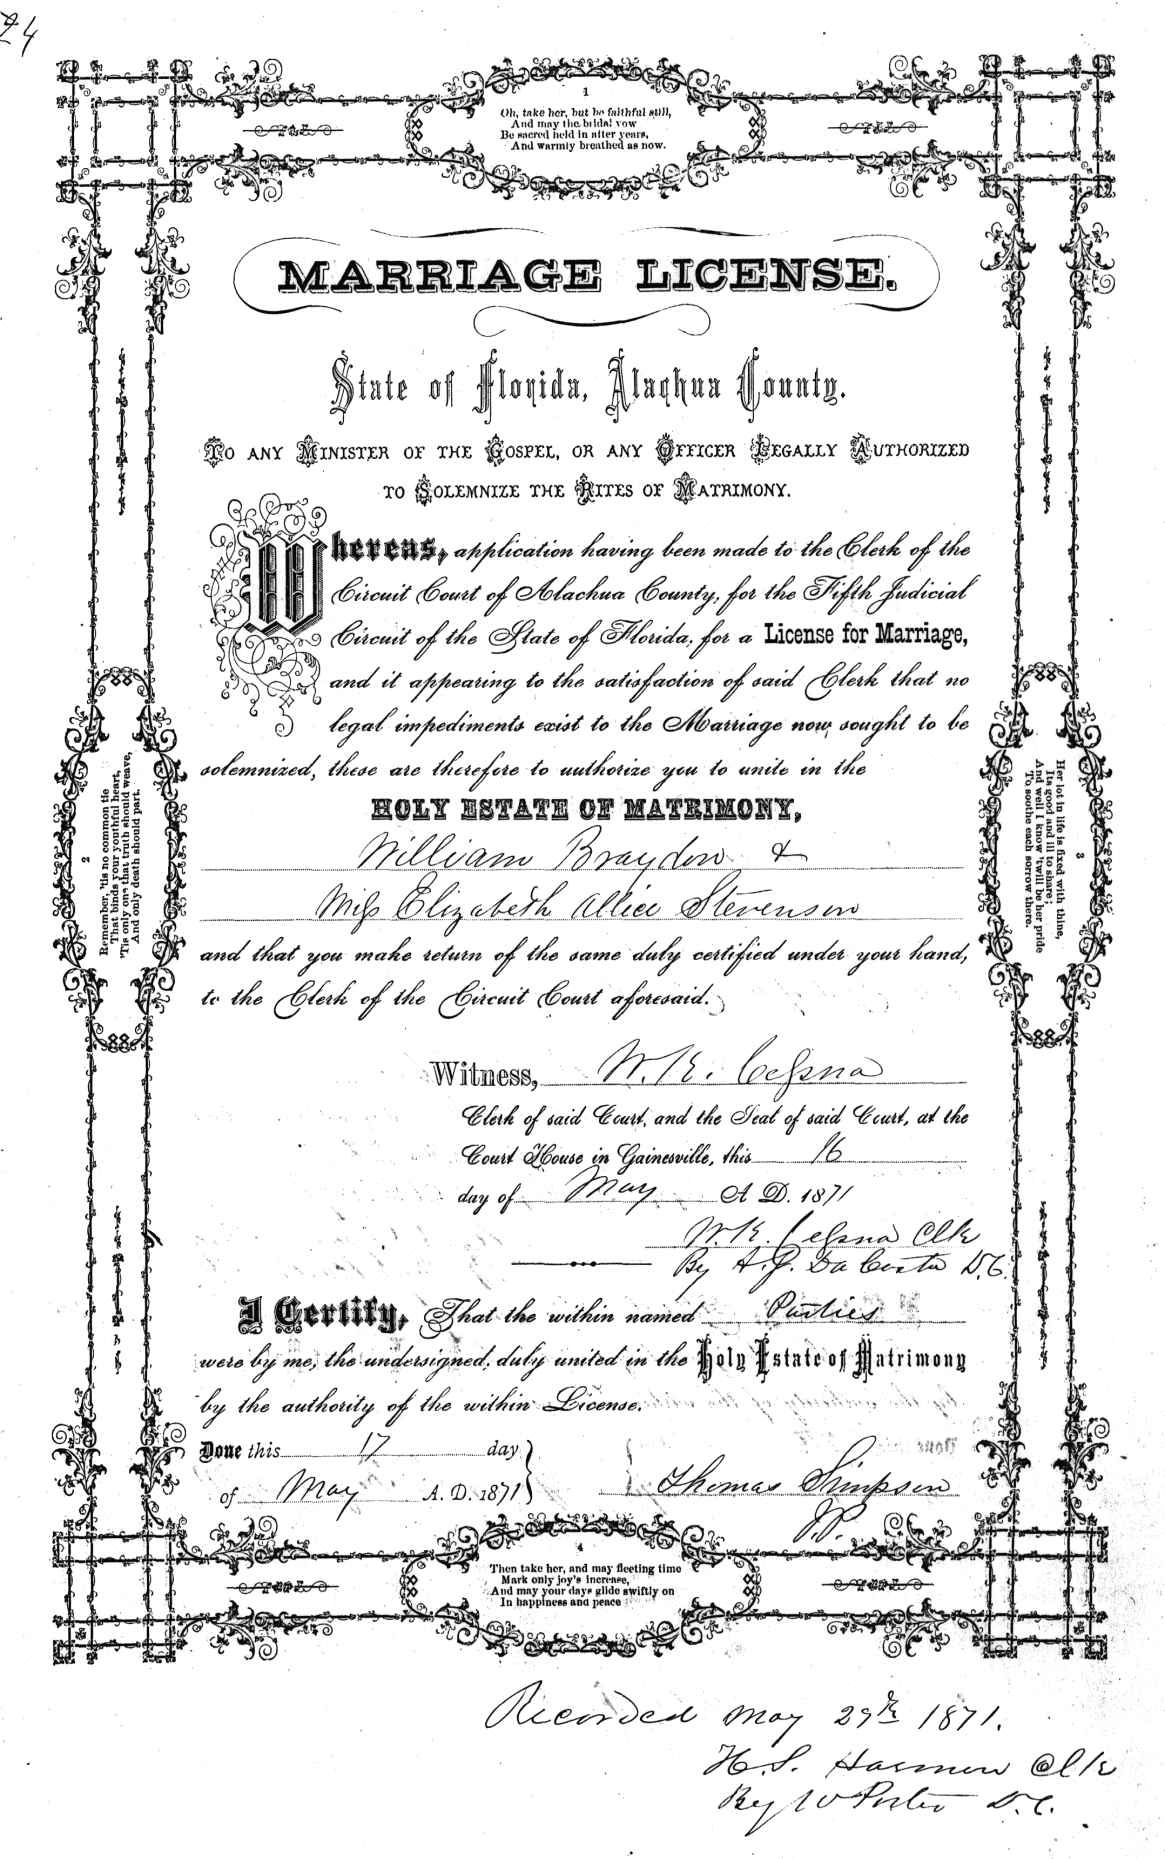 24
1
Oh, take her, but be faithful still,
And may the bridal vow
Be sacred held in after years,
And warmly breathed as now.
MARRIAGE LICENSE.
State of Florida, Alachua County.
TO ANY MINISTER OF THE GOSPEL, OR ANY OFFICER LEGALLY AUTHORIZED
TO SOLEMNIZE THE RITES OF MATRIMONY.
Whereas, application having been made to the Clerk of the
Circuit Court of Alachua County, for the Fifth Judicial
Circuit of the State of Florida, for a License for Marriage,
and it appearing to the satisfaction of said Clerk that no
legal impediments exist to the Marriage now sought to be
solemnized, these are therefore to authorize you to unite in the
HOLY ESTATE OF MATRIMONY,
William Braydon &
Miss Elizabeth Allice Stevenson
and that you make return of the same duly certified under your hand,
to the Clerk of the Circuit Court aforesaid.
2
Remember, 'tis no common tie
That binds your youthful heart,
'Tis only one that truth should weave,
And only death should part.
3
Her lot in life is fixed with thine,
Its good and ill to share;
And well I know 'twill be her pride
To soothe each sorrow there.
Witness, W. K. Cessna
Clerk of said Court, and the Seal of said Court, at the
Court House in Gainesville, this 16
day of May A. D. 1871
W. K. Cessna Clk
By A. J. Da Costa D.C.
I Certify, That the within named Parties
were by me, the undersigned, duly united in the Holy Estate of Matrimony
by the authority of the within License.
Done this 17 day
of May A. D. 1871
Thomas Simpson
J.P.
4
Then take her, and may fleeting time
Mark only joy's increase,
And may your days glide swiftly on
In happiness and peace
Recorded May 29th 1871.
H. S. Harmon Clk
By W Porter D.C.